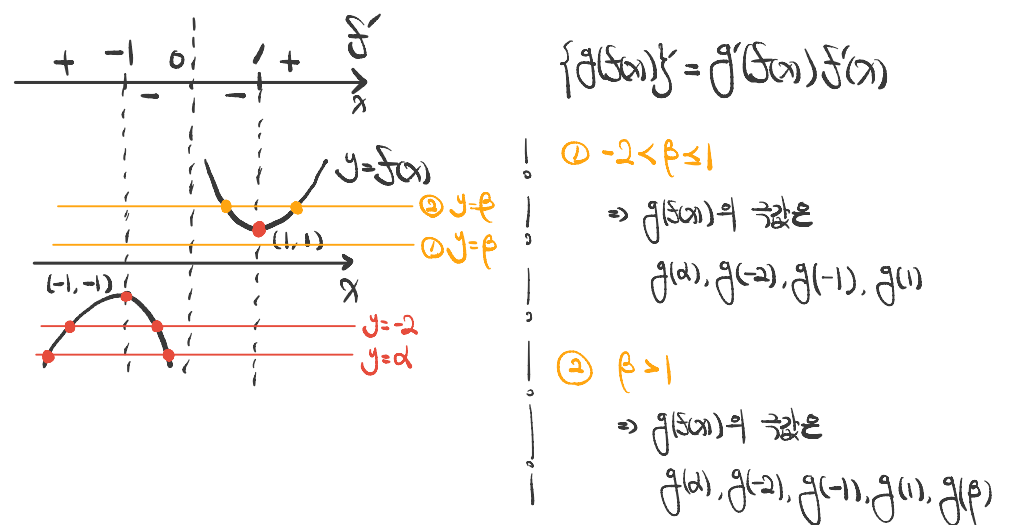 + -1 0 1 + f'
- - x
y=f(x)
② y=β
(1, 1)
① y=β
(-1, -1) x
y=-2
y=α
{g(f(x))}'=g'(f(x))f'(x)
① -2<β≤1
⇒ g(f(x))의 극값은
g(α), g(-2), g(-1), g(1)
② β>1
⇒ g(f(x))의 극값은
g(α), g(-2), g(-1), g(1), g(β)